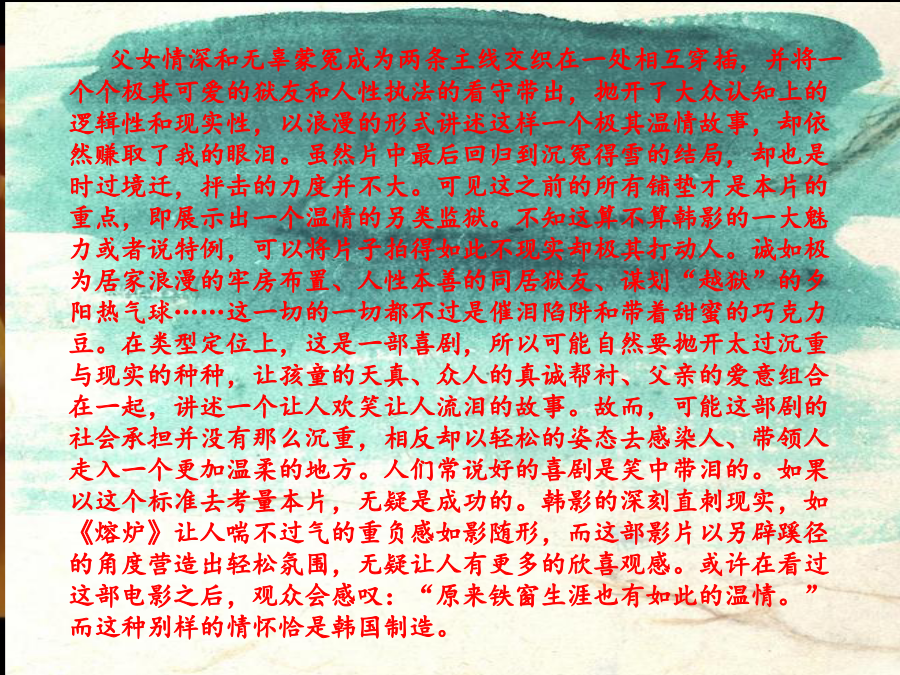 父女情深和无辜蒙冤成为两条主线交织在一处相互穿插，并将一
个个极其可爱的狱友和人性执法的看守带出，抛开了大众认知上的
逻辑性和现实性，以浪漫的形式讲述这样一个极其温情故事，却依
然赚取了我的眼泪。虽然片中最后回归到沉冤得雪的结局，却也是
时过境迁，抨击的力度并不大。可见这之前的所有铺垫才是本片的
重点，即展示出一个温情的另类监狱。不知这算不算韩影的一大魅
力或者说特例，可以将片子拍得如此不现实却极其打动人。诚如极
为居家浪漫的牢房布置、人性本善的同居狱友、谋划“越狱”的夕
阳热气球……这一切的一切都不过是催泪陷阱和带着甜蜜的巧克力
豆。在类型定位上，这是一部喜剧，所以可能自然要抛开太过沉重
与现实的种种，让孩童的天真、众人的真诚帮衬、父亲的爱意组合
在一起，讲述一个让人欢笑让人流泪的故事。故而，可能这部剧的
社会承担并没有那么沉重，相反却以轻松的姿态去感染人、带领人
走入一个更加温柔的地方。人们常说好的喜剧是笑中带泪的。如果
以这个标准去考量本片，无疑是成功的。韩影的深刻直刺现实，如
《熔炉》让人喘不过气的重负感如影随形，而这部影片以另辟蹊径
的角度营造出轻松氛围，无疑让人有更多的欣喜观感。或许在看过
这部电影之后，观众会感叹：“原来铁窗生涯也有如此的温情。”
而这种别样的情怀恰是韩国制造。